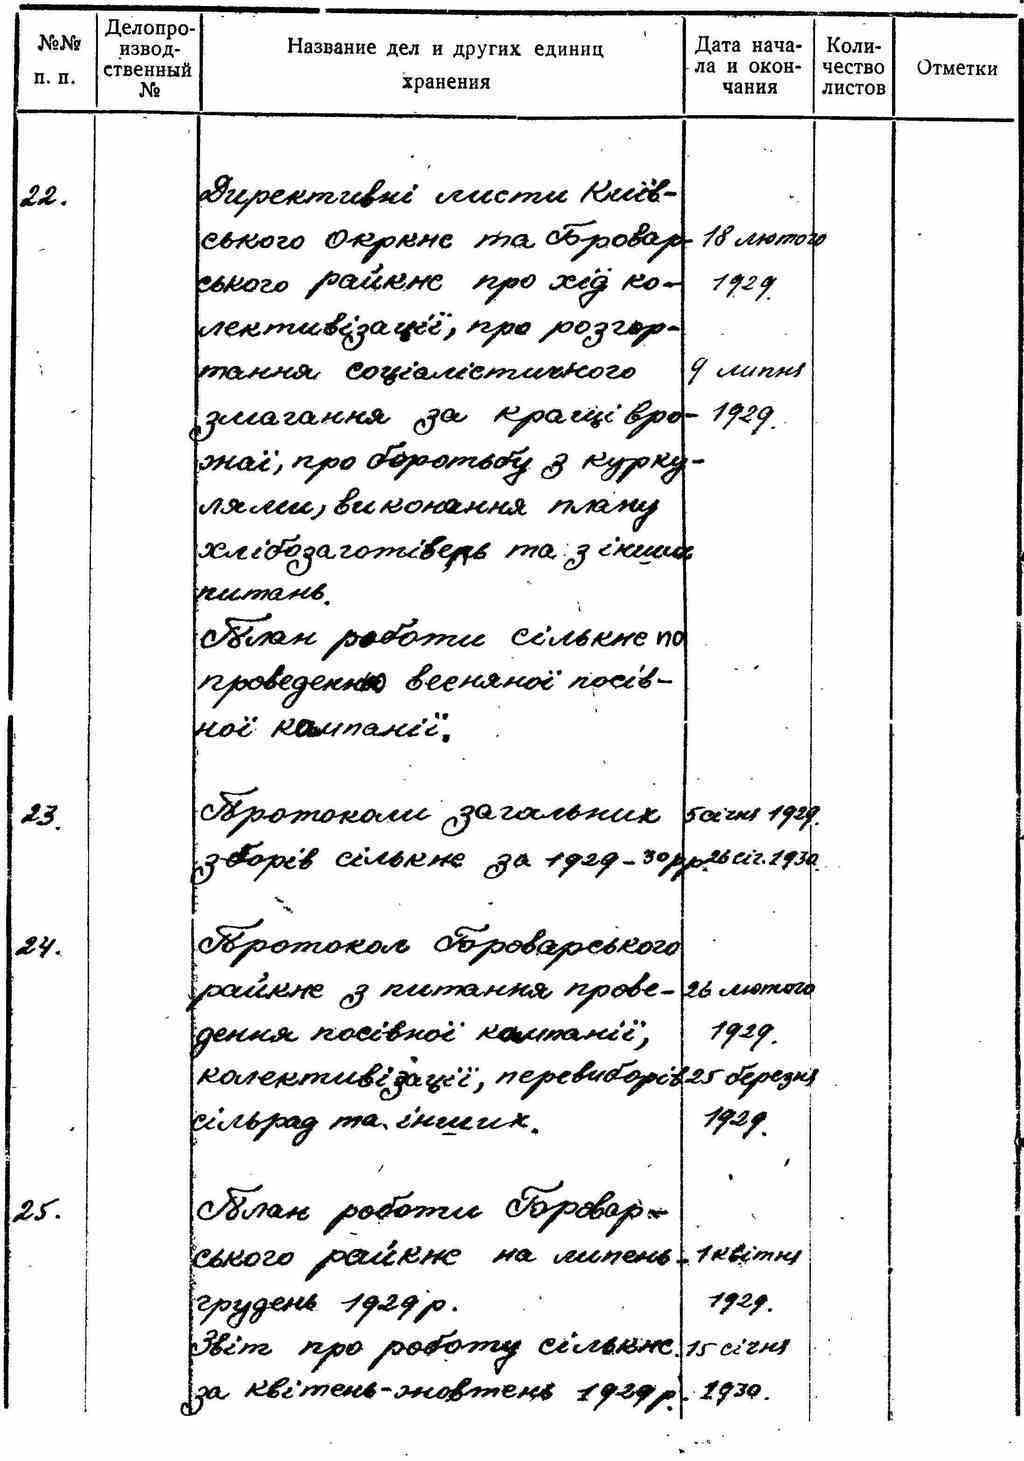 №№ п. п.
Делопроизводственный №
Название дел и других единиц хранения
Дата начала и окончания
Количество листов
Отметки
22.
Директивні листи Київ-
ського Окркнс та Бровар- 18 лютого
ського райкнс про хід ко- 1929.
лективізації, про розгор-
тання соціалістичного 9 липня
змагання за кращі вро- 1929.
жаї, про боротьбу з курку-
лями, виконання плану
хлібозаготівель та з інших
питань.
План роботи сількнс по
проведенню весняної посів-
ної кампанії.
23. Протоколи загальних 5 січня 1929.
зборів сількнс за 1929-30рр. 26 січ. 1930.
24. Протокол Броварського
райкнс з питання прове- 26 лютого
дення посівної кампанії, 1929.
колективізації, перевиборів 25 березня
сільрад та інших. 1929.
25. План роботи Бровар-
ського райкнс на липень- 1 квітня
грудень 1929 р. 1929.
Звіт про роботу сількнс 15 січня
за квітень-жовтень 1929 р. 1930.